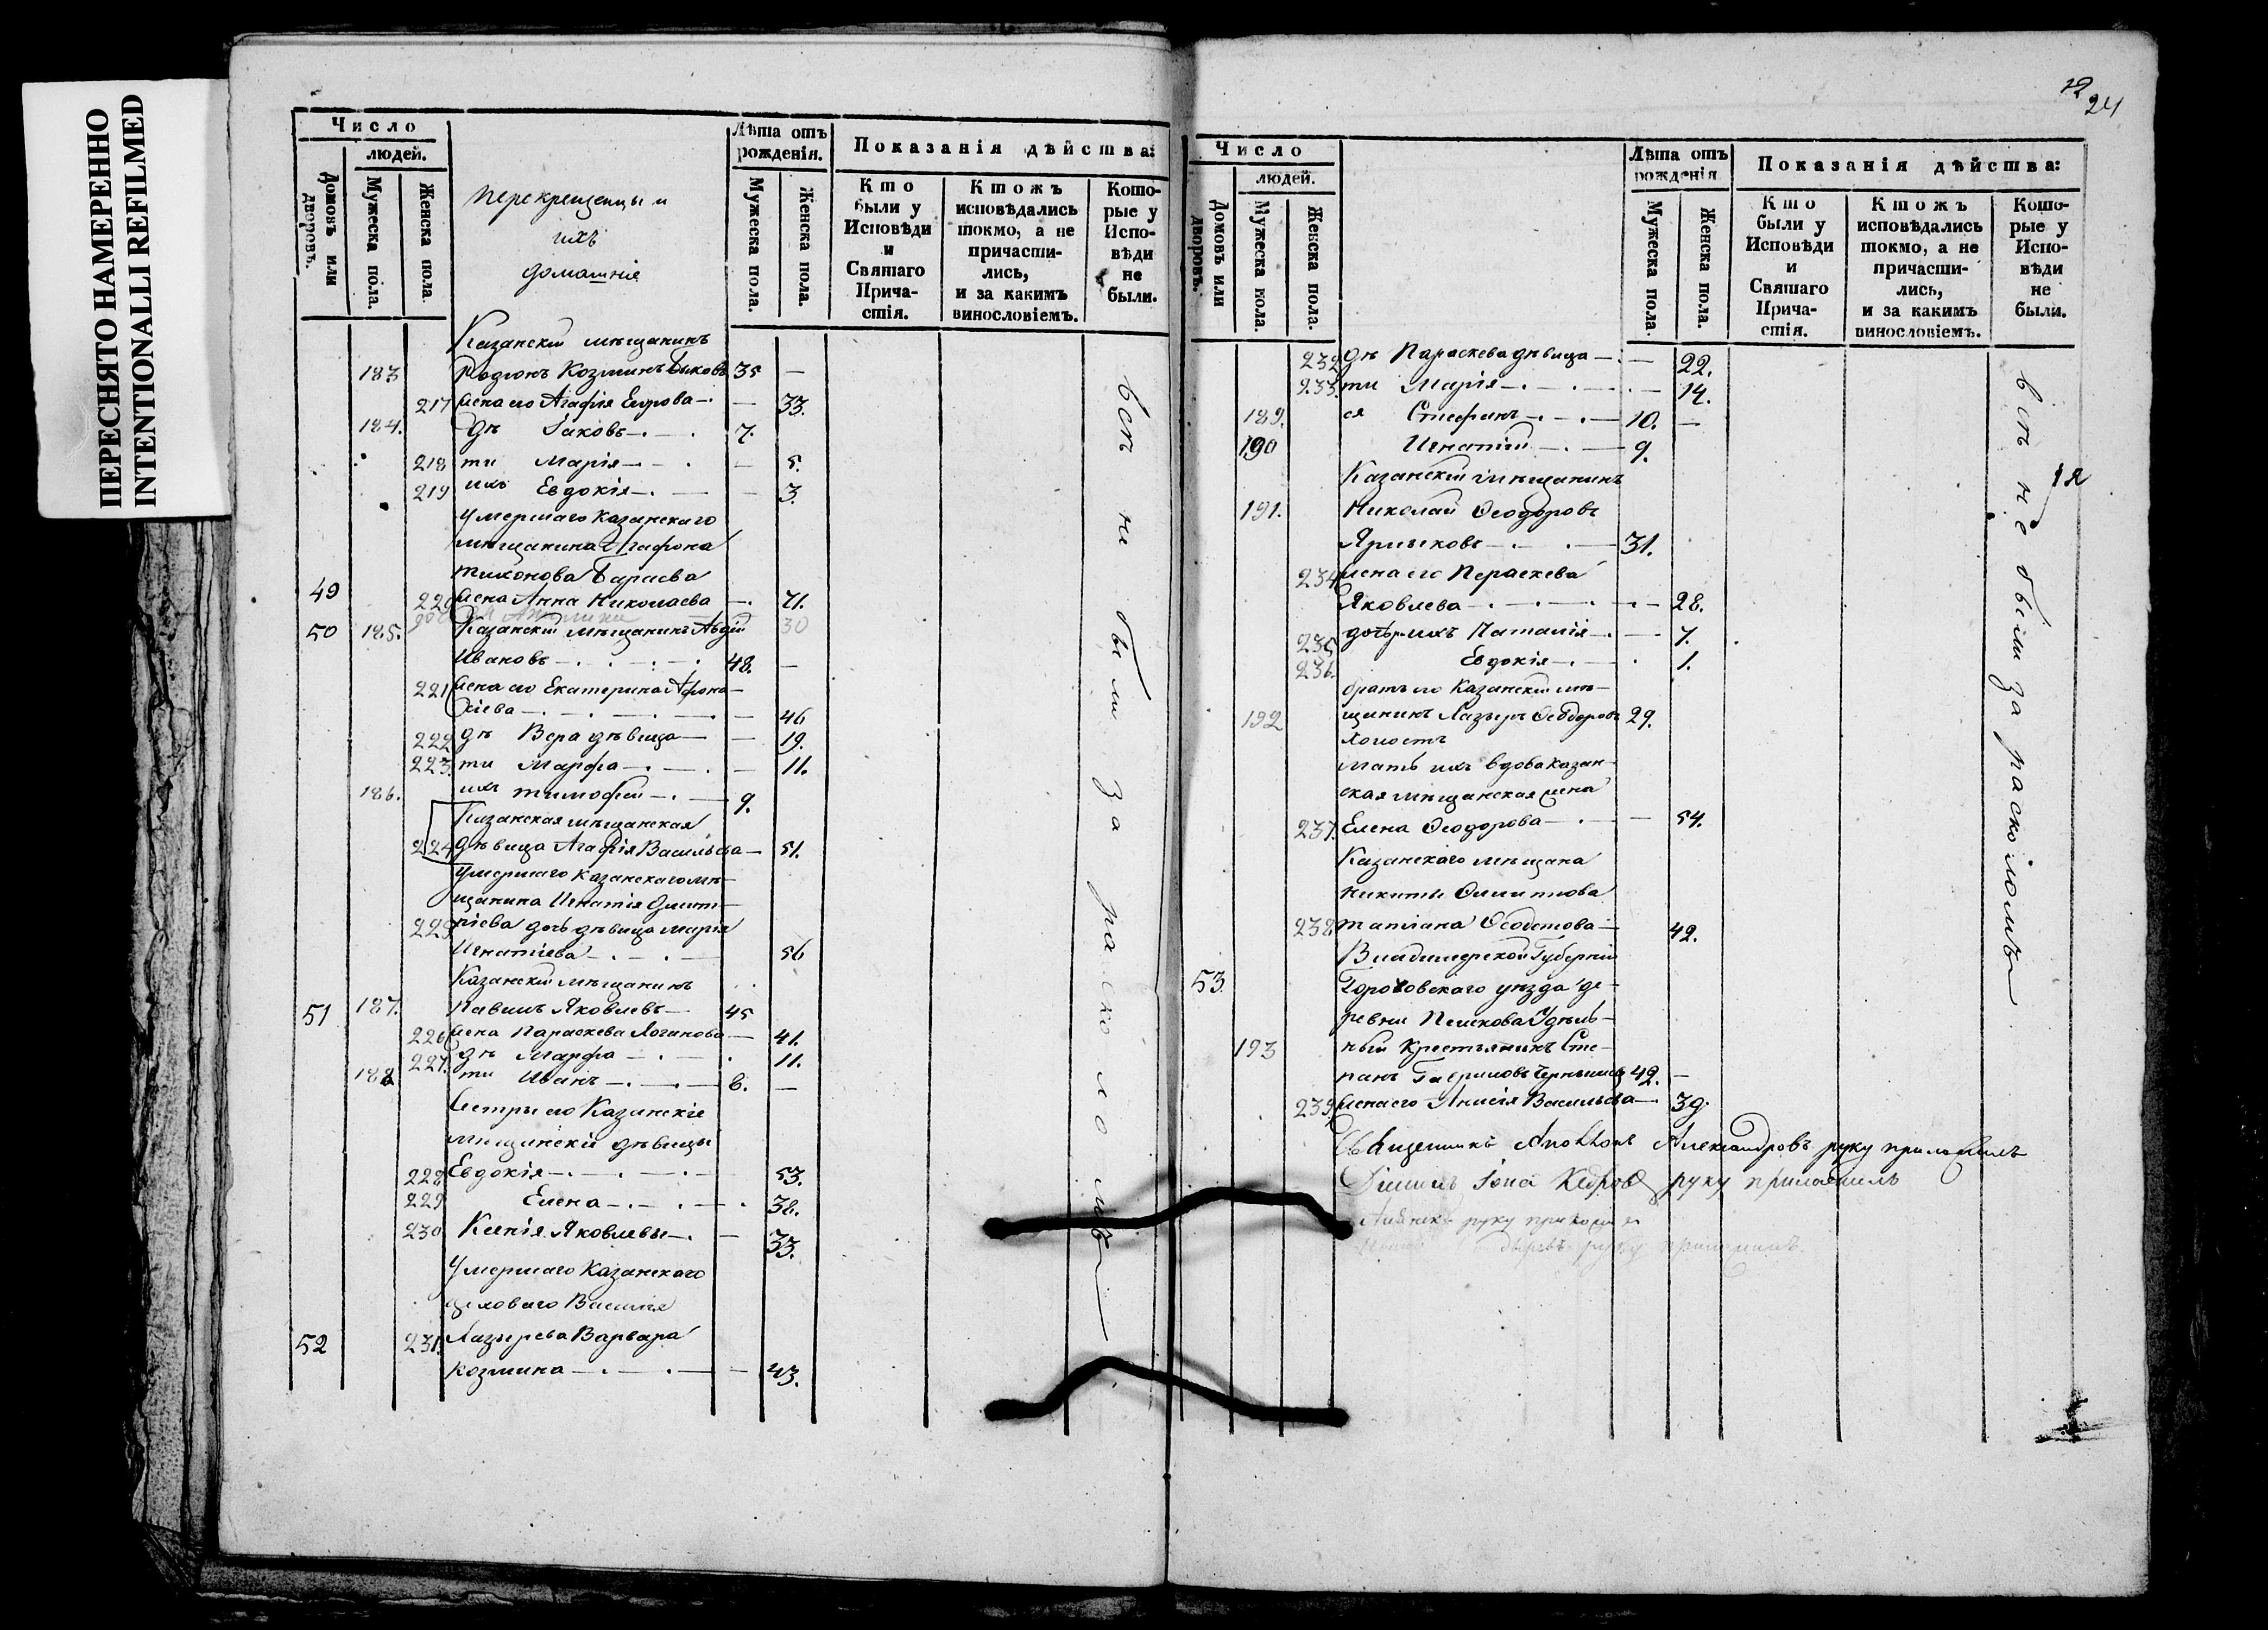 ПЕРЕСНЯТО НАМЕРЕННО
INTENTIONALLI REFILMED
Число
людей.
Домовъ или дворовъ.
Мужеска пола.
Женска пола.
перекрещенцы и
ихъ
домашніе
Лѣта отъ рожденія.
Мужеска пола.
Женска пола.
Показанія дѣйства:
Кто были у Исповѣди и Святаго Причастія.
Ктожъ исповѣдались токмо, а не причастились, и за какимъ винословіемъ.
Которые у Исповѣди не были.
Казанскій мѣщанинъ
183 Родіонъ Козминъ 35 —
217 Жена его Агафія — 33.
184. дѣ Іаковъ 7.
218 ти Марія — 5.
219 ихъ Евдокія — 3.
Умершаго Казанскаго
мѣщанина Агафона
Тихонова
49 220 Жена Анна Николаева — 71.
30
50 185. Казанскій мѣщанинъ Авдій
Ивановъ 48. —
221 Жена его Екатерина
— 46
222 дѣ Вера дѣвица — 19.
223. ти Марфа — 11.
186. ихъ Тимофей 9.
Казанская мѣщанская
224 дѣвица Агафія Васильева — 51.
Умершаго Казанскаго мѣ-
щанина Игнатія Дмит-
225 ріева дочь дѣвица Марія
Игнатіева 56
Казанскій мѣщанинъ
51 187. Павелъ Яковлевъ 45
226 Жена Параскева Логинова — 41.
227. дѣ Марфа 11.
188 ти Иванъ 6. —
Сестры его Казанскіе
мѣщанскіе дѣвицы
228 Евдокія 53.
229 Елена 38.
230 Ксенія Яковлевы — 33.
Умершаго Казанскаго
цеховаго Василія
52 231. Лазырева Варвара
Козмина — 43.
всѣ не были за расколомъ
19
24
Число
людей.
Домовъ или дворовъ.
Мужеска пола.
Женска пола.
Лѣта отъ рожденія
Мужеска пола.
Женска пола.
Показанія дѣйства:
Кто были у Исповѣди и Святаго Причастія.
Ктожъ исповѣдались токмо, а не причастились, и за какимъ винословіемъ.
Которые у Исповѣди не были.
232 дѣ Параскева дѣвица — 22.
233. ти Марія — 14.
189. ея Стефанъ 10. —
190 Игнатій 9.
Казанскій мѣщанинъ
191. Николай Ѳеодоровъ
31.
234 Жена его Параскева
Яковлева — 28.
235 дочери ихъ Наталія — 7.
236. Евдокія 1.
братъ его Казанскій мѣ-
192 щанинъ Лазырь Ѳеодоровъ 29.
холостъ
Мать ихъ вдова Казан-
ская мѣщанская жена
237. Елена Ѳеодорова — 54.
Казанскаго мѣщана
Никиты
238 Татіана 42.
Владимерской Губерніи
53. Гороховскаго уѣзда де-
ревни Удѣль-
193 ный Крестьянинъ Сте-
панъ Гавриловъ 42. —
239. Жена его Анисія Васильева — 39.
Священникъ Аполлонъ Александровъ руку приложилъ
Діаконъ Іона Кедровъ руку приложилъ
руку приложилъ
руку приложилъ
всѣ не были за расколомъ